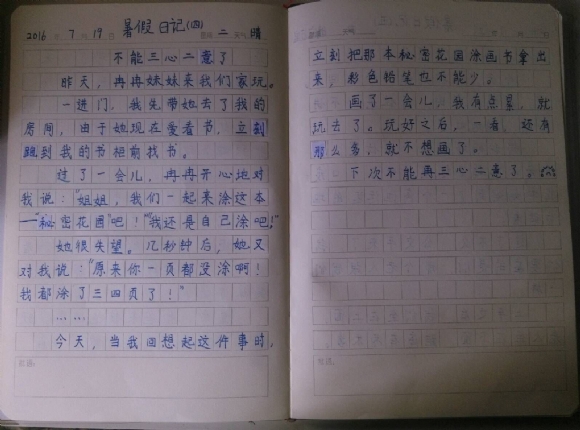 2016年7月19日 暑假日记(四) 星期二 天气晴
不能三心二意了
昨天，冉冉妹妹来我们家玩。
一进门，我先带她去了我的
房间，由于她现在爱看书，立刻
跑到我的书柜前找书。
过了一会儿，冉冉开心地对
我说：“姐姐，我们一起来涂这本
——‘秘密花园’吧！”“我还是自己涂吧！”
她很失望。几秒钟后，她又
对我说：“原来你一页都没涂啊！
我都涂了三四页了！”
……
今天，当我回想起这件事时，
立刻把那本秘密花园涂画书拿出
来，彩色铅笔也不能少。
画了一会儿，我有点累，就
玩去了。玩好之后，一看，还有
那么多，就不想画了。
下次不能再三心二意了。